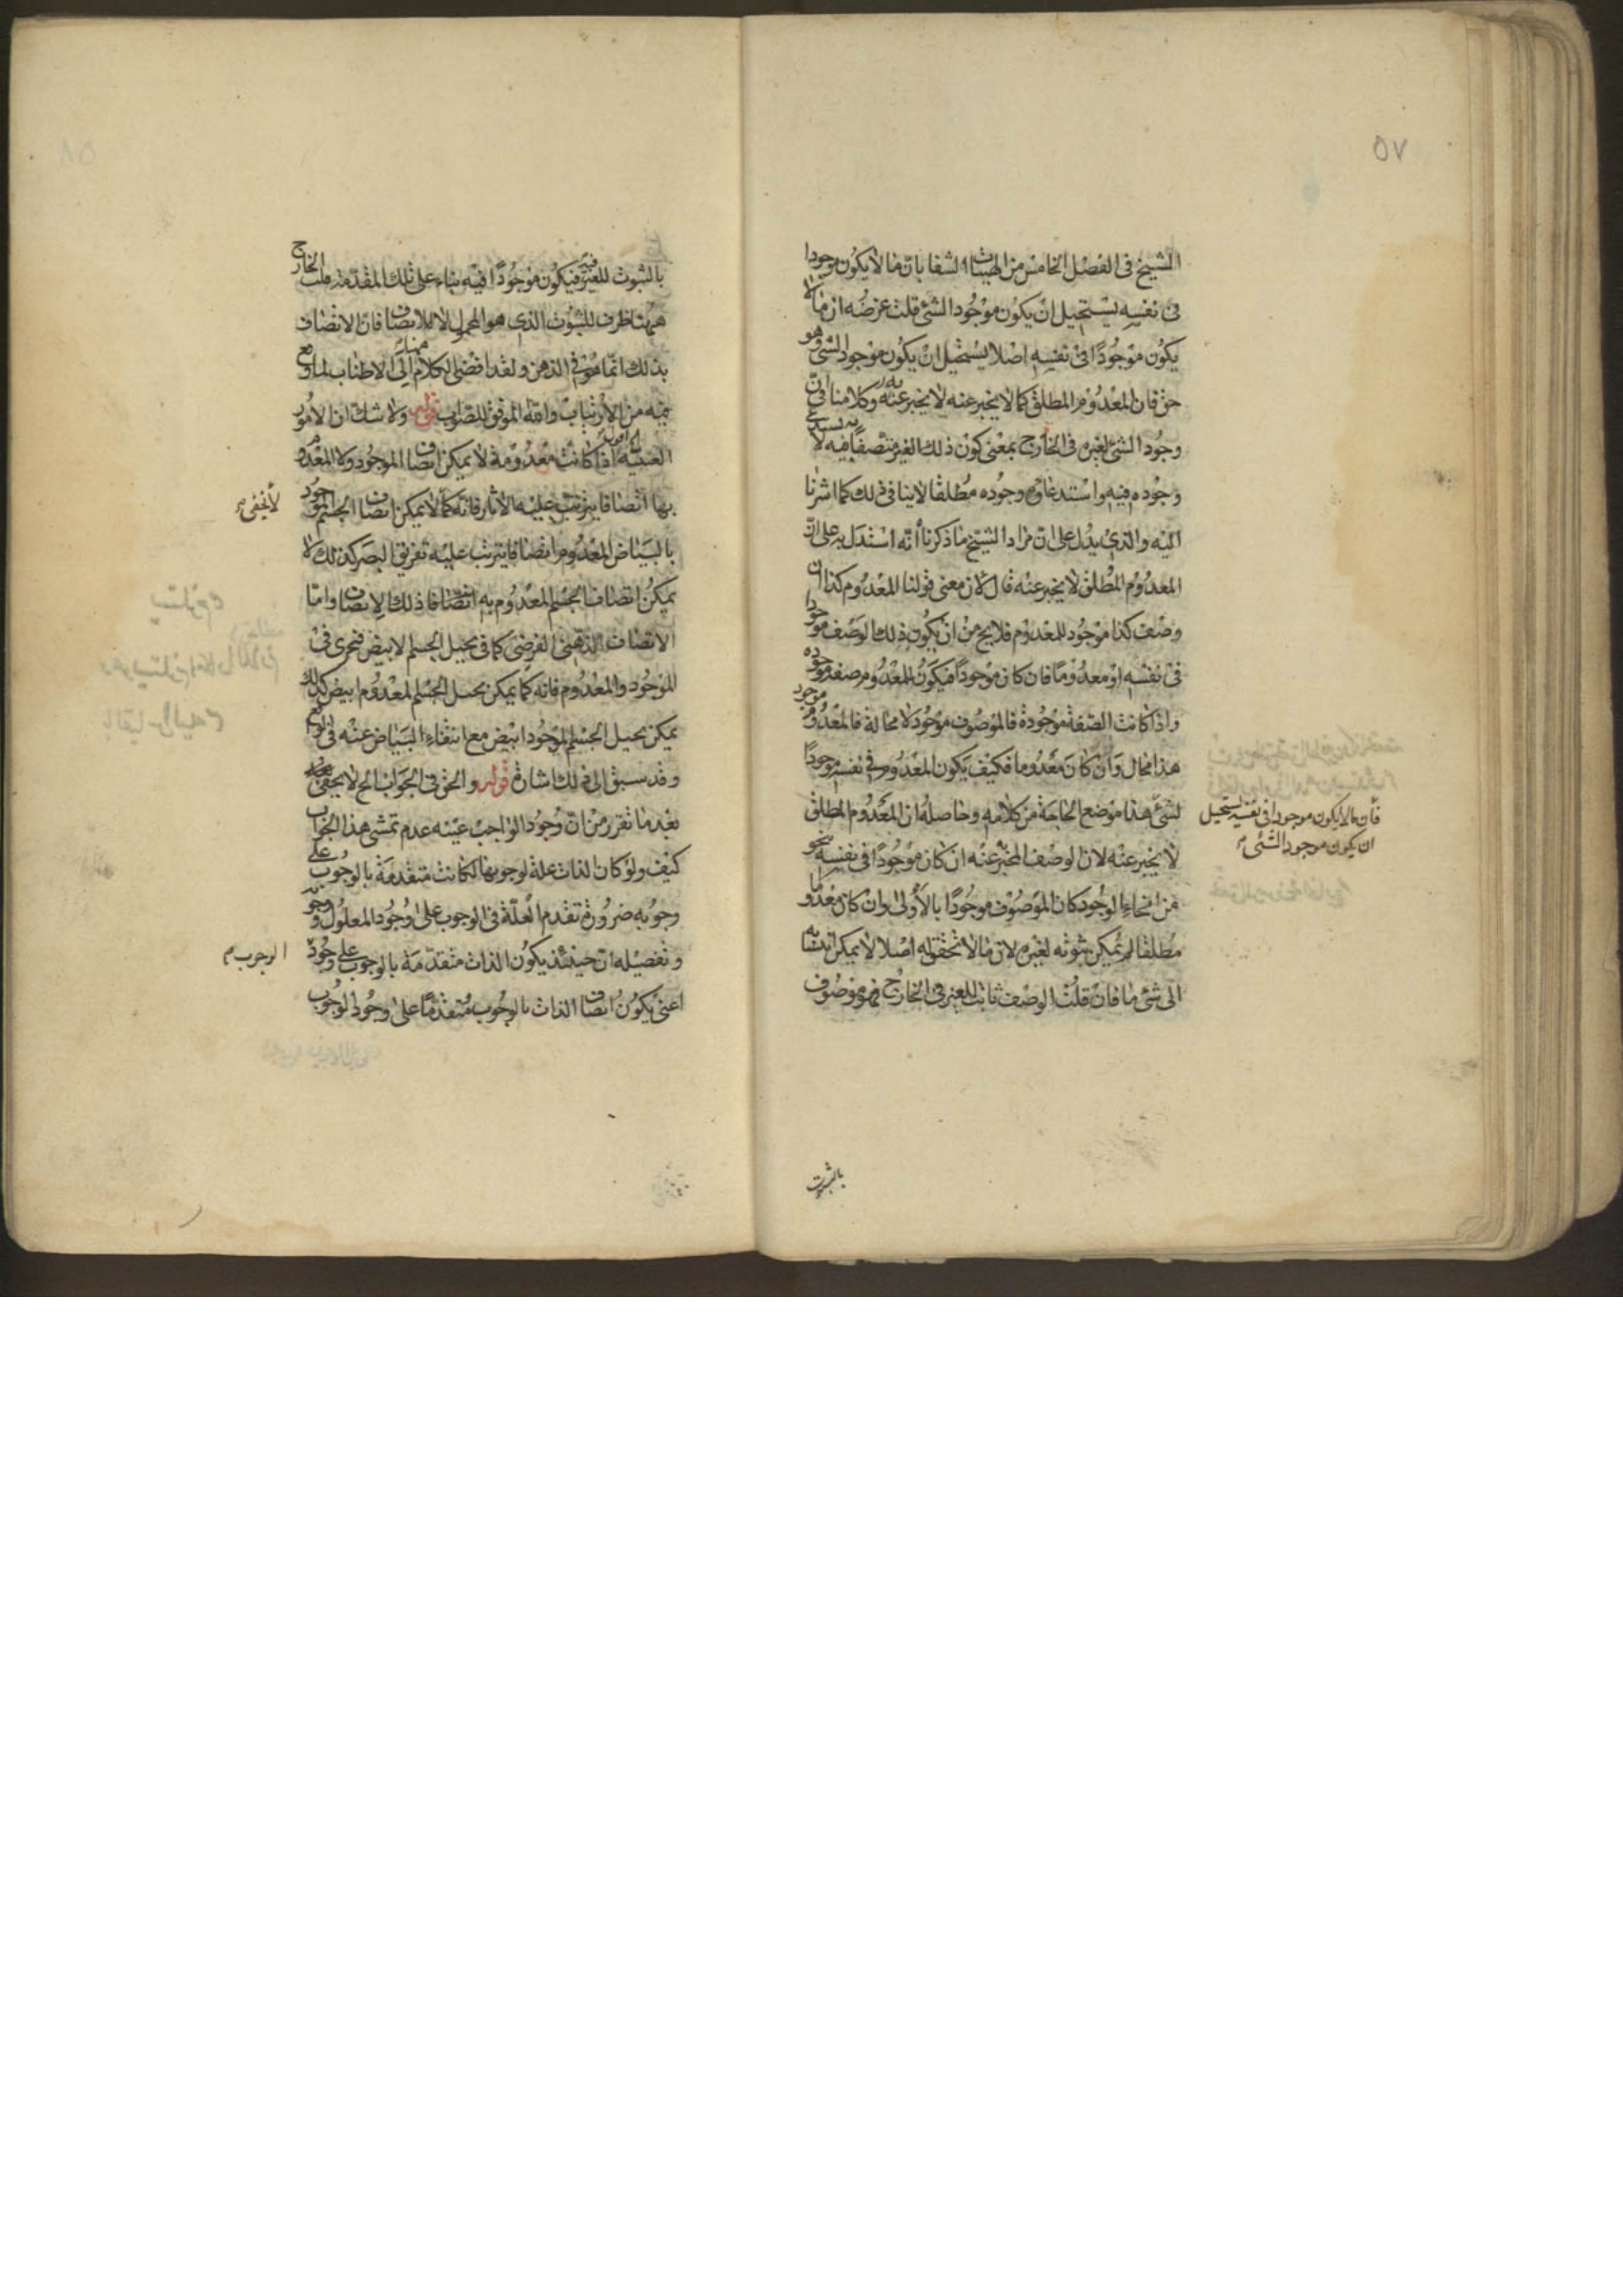 ٥٧
الشيخ فى الفصل الخامس من الهيات الشفا بان ما لا يكون موجودا
فى نفسه يستحيل ان يكون موجودا لشئ قلت غرضه ان ما لا
يكون موجودًا فى نفسه اصلا يستحيل ان يكون موجودا لشئ وهو
حق فان المعدوم المطلق كما لا يخبر عنه لا يخبر به وكلامنا فى ان
وجود الشئ لغيره فى الخارج بمعنى كون ذلك الغير متصفا به فيه لا يستدعى
وجوده فيه واستدعاؤه وجوده مطلقا لا ينافى ذلك كما اشرنا
اليه والذى يدل على ان مراد الشيخ ما ذكرنا أنه استدل به على ان
المعدوم المطلق لا يخبر عنه قال لان معنى قولنا المعدوم كذا ان
وصف كذا موجود للمعدوم فلا يخ من ان يكون ذلك الوصف موجودا
فى نفسه او معدومًا فان كان موجودًا فيكون للمعدوم صفة موجوده
واذا كانت الصفة موجودة فالموصوف موجود لا محالة فالمعدوم موجود
هذا محال وان كان معدوما فكيف يكون المعدوم فى نفسه موجودًا
لشئ هذا موضع الحاجة من كلامه وحاصله ان المعدوم المطلق
لا يخبر عنه لان الوصف المخبر عنه ان كان موجودًا فى نفسه بنحو
من انحاء الوجود كان الموصوف موجودًا بالأولى وان كان معدوما
مطلقا لم يمكن ثبوته لغيره لان ما لا تحقق له اصلا لا يمكن انتسابه
الى شئ ما فان قلت الوصف ثابت للغير فى الخارج فهو موصوف
فان ما لا يكون موجودا فى نفسه يستحيل
ان يكون موجودا لشئ
بالثبوت
٥٨
بالثبوت للغير فيه فيكون موجودًا فيه بناء على تلك المقدمة قلت الخارج
ههنا ظرف للثبوت الذى هو المحمول لا للاتصاف فان الاتصاف
بذلك انما هو فى الذهن ولقد افضى الكلام الى الاطناب لما وقع
فيه من الارتياب والله الموفق للصواب قوله ولا شك ان الامور
العينية اذا كانت معدومة لا يمكن اتصاف الموجود ولا المعدوم
بها اتصافا يترتب عليه الآثار فانه كما لا يمكن اتصاف الجسم الموجود
بالبياض المعدوم اتصافا يترتب عليه تفريق البصر كذلك لا
يمكن اتصاف الجسم المعدوم به اتصافا ذلك الاتصاف واما
الاتصاف الذهنى الفرضى كما فى تخيل الجسم الابيض فيجرى فى
الموجود والمعدوم فانه كما يمكن تخيل الجسم المعدوم ابيض كذلك
يمكن تخيل الجسم الموجود ابيض مع انتفاء البياض عنه فى الواقع
وقد سبق الى ذلك اشارة قوله والحق فى الجواب الخ لا يخفى
بعد ما تقرر من ان وجود الواجب عينه عدم تمشى هذا الجواب
كيف ولو كان الذات علة لوجوبها لكانت متقدمة بالوجوب على
وجوبه ضرورة تقدم العلة فى الوجوب على وجود المعلول ووجوبه
وتفصيله ان حينئذ يكون الذات متقدمة بالوجوب على وجود
اعنى يكون اتصاف الذات بالوجوب متقدمًا على وجود الوجوب
لا يخفى
الوجوب